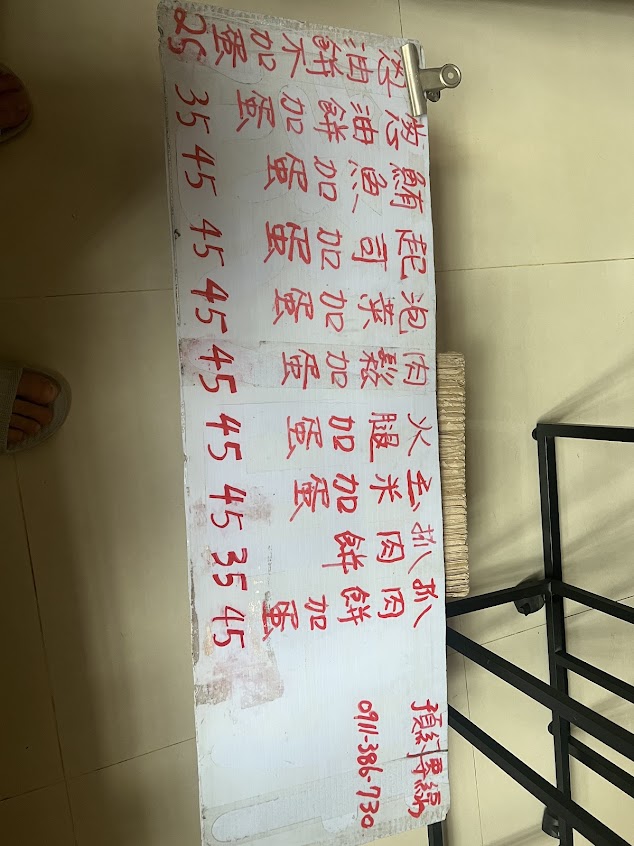 葱油餅不加蛋 25
葱油餅加蛋 35
鮪魚加蛋 45
起司加蛋 45
泡菜加蛋 45
肉鬆加蛋 45
火腿加蛋 45
玉米加蛋 45
扒肉餅 35
扒肉餅加蛋 45
預約專線
0911-386-730